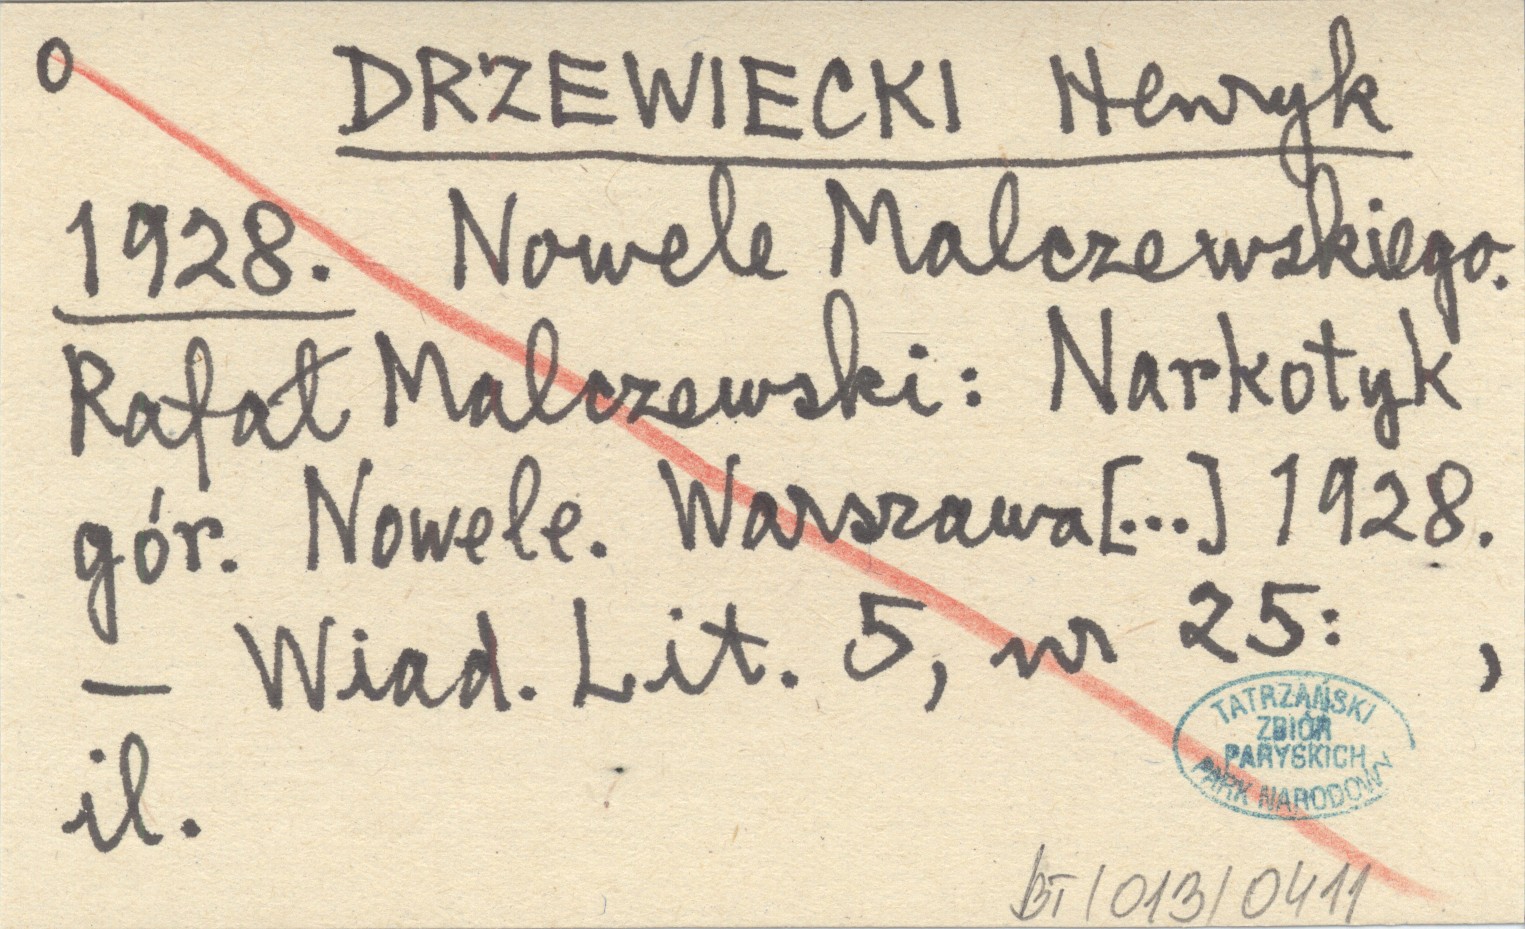 O DRZEWIECKI Henryk
1928. Nowele Malczewskiego.
Rafał Malczewski: Narkotyk
gór. Nowele. Warszawa[...] 1928.
— Wiad. Lit. 5, nr 25: ,
il.
TATRZAŃSKI
ZBIÓR
PARYSKICH
PARK NARODOWY
BT/013/0411